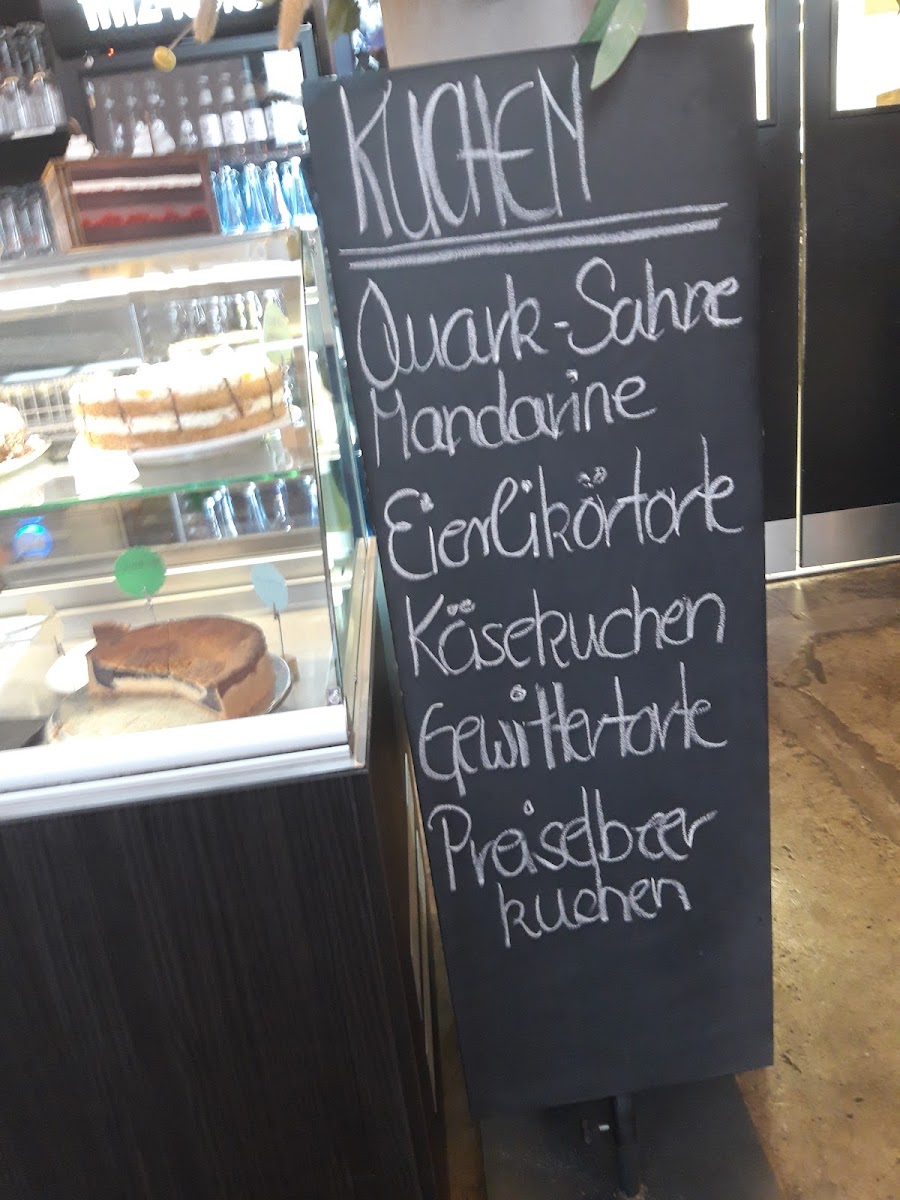 KUCHEN
Quark-Sahne
Mandarine
Eierlikörtorte
Käsekuchen
Gewittertorte
Preiselbeer
kuchen